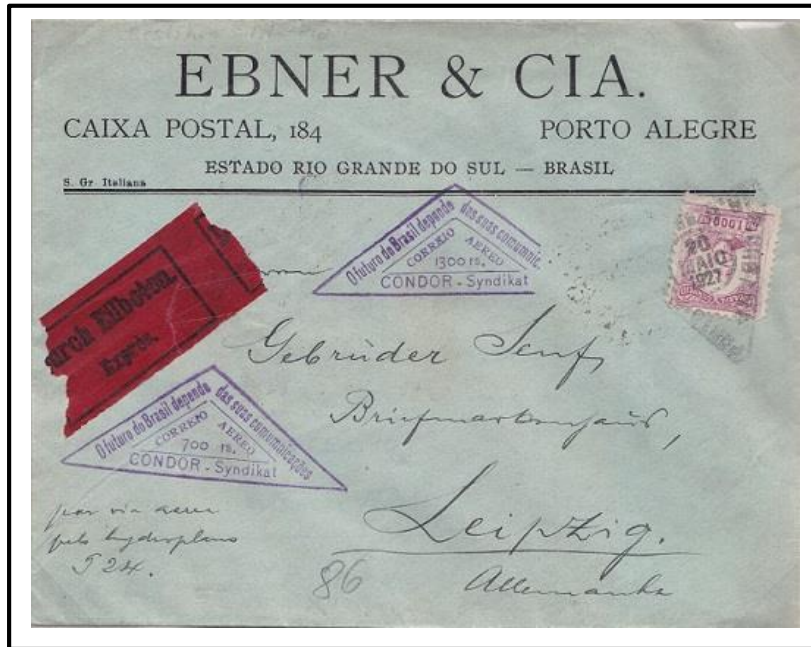 EBNER & CIA.
CAIXA POSTAL, 184
PORTO ALEGRE
ESTADO RIO GRANDE DO SUL — BRASIL
S. Gr. Italiana
O futuro do Brasil depende das suas comumnic
CORREIO AEREO
1300 rs.
CONDOR - Syndikat
1000
20
MAIO
1927
urch Eilboten.
Exprès.
Gebrüder Senf,
Briefmarkenhaus,
O futuro do Brasil depende das suas comumnicações
CORREIO AEREO
700 rs.
CONDOR - Syndikat
Leipzig.
Allemanha
por via aerea
pelo hydroplano
S 24.
86